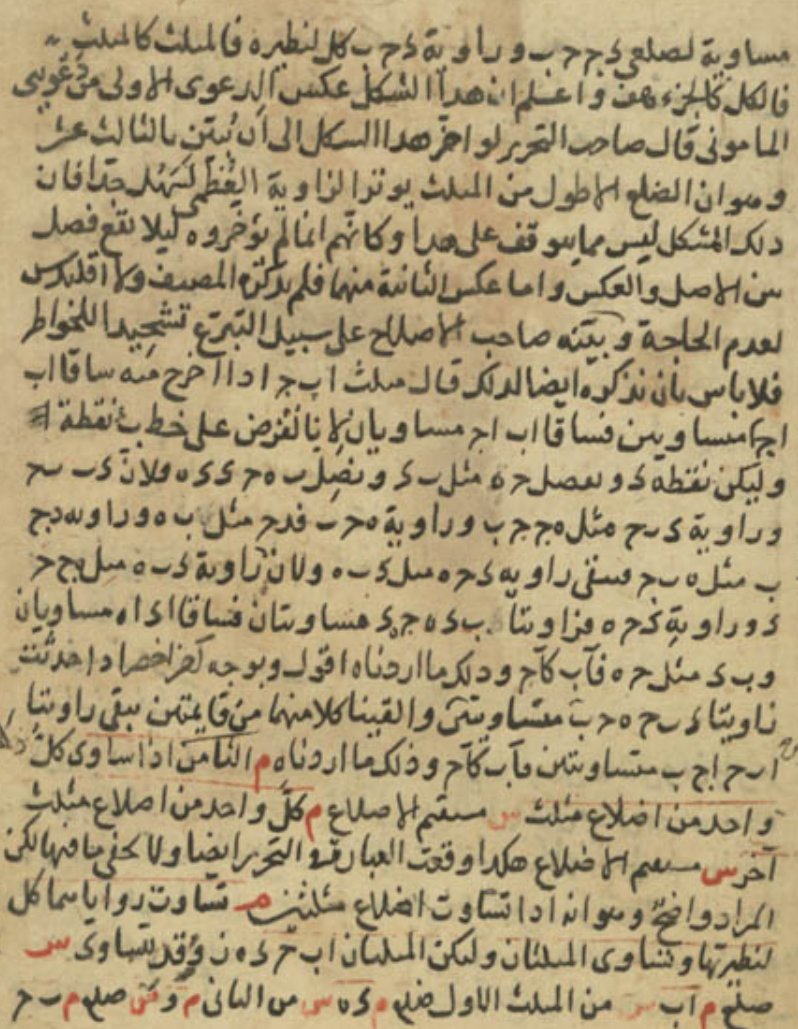 مساوية لضلعي د ج ح ب وزاوية د ح ب كل لنظيره فالمثلث كالمثلث
فالكل كالجزء هف واعلم ان هذا الشكل عكس الدعوى الاولى من دعويى
المامونى قال صاحب التحرير لو اخر هذا الشكل الى ان نبين بالثالث عشر
وهو ان الضلع الاطول من المثلث يوتر الزاوية العظمى لسهل جدا فان
ذلك الشكل ليس مما يتوقف على هذا وكانهم انما لم يؤخروه ليلا يقع فصل
بين الاصل والعكس واما عكس الثانية منهما فلم يذكره المصنف ولا اقليدس
لعدم الحاجة وبينه صاحب الاصلاح على سبيل التبرع تشحيذا للخواطر
فلا باس بان نذكره ايضا لذلك قال مثلث ا ب ج اذا اخرج منه ساقا ا ب
ا ج متساويين فساقا ا ب ا ج مساويان لانا نفرض على خط ب نقطة
وليكن نقطة د ونفصل ح ه مثل ب د ونصل ب ه ح د د ه ولان د ب ب ح
وزاوية د ب ح مثل ه ج ج ب وزاوية ه ح ب فد ح مثل ب ه وزاوية د ج
ب مثل ه ب ج فتبقى زاوية د ح ه مثل د ب ه ولان زاوية د ب ه مثل د ج ح
د وزاوية د ح ه فزاويتا ب د ه ج ه د متساويتان فساقا ا د ا ه مساويان
وب د مثل ح ه فا ب كا ح وذلك ما اردناه اقول وبوجه اخر اخصر اذا حدثت
زاويتا د ب ح ه ح ب متساويتين والقينا كلا منهما من قايمتين يبقى زاويتا
ا ب ح ا ج ب متساويتين فا ب كا ح وذلك ما اردناه م الثامن اذا ساوى كل
واحد من اضلاع مثلث س مستقيم الاضلاع م كل واحد من اضلاع مثلث
آخر س مستقيم الاضلاع هكذا وقعت العبارة فى التحرير ايضا ولا يخفى ما فيها لكن
المراد واضح وهو انه اذا تساوت اضلاع مثلثين م تساوت زواياهما كل
لنظيرتها وتساوى المثلثان وليكن المثلثان ا ب ح د ه ز وقد تساوى س
ضلع م ا ب س من المثلث الاول ضلع م د ه س من الثانى م و س ضلع م ب ح